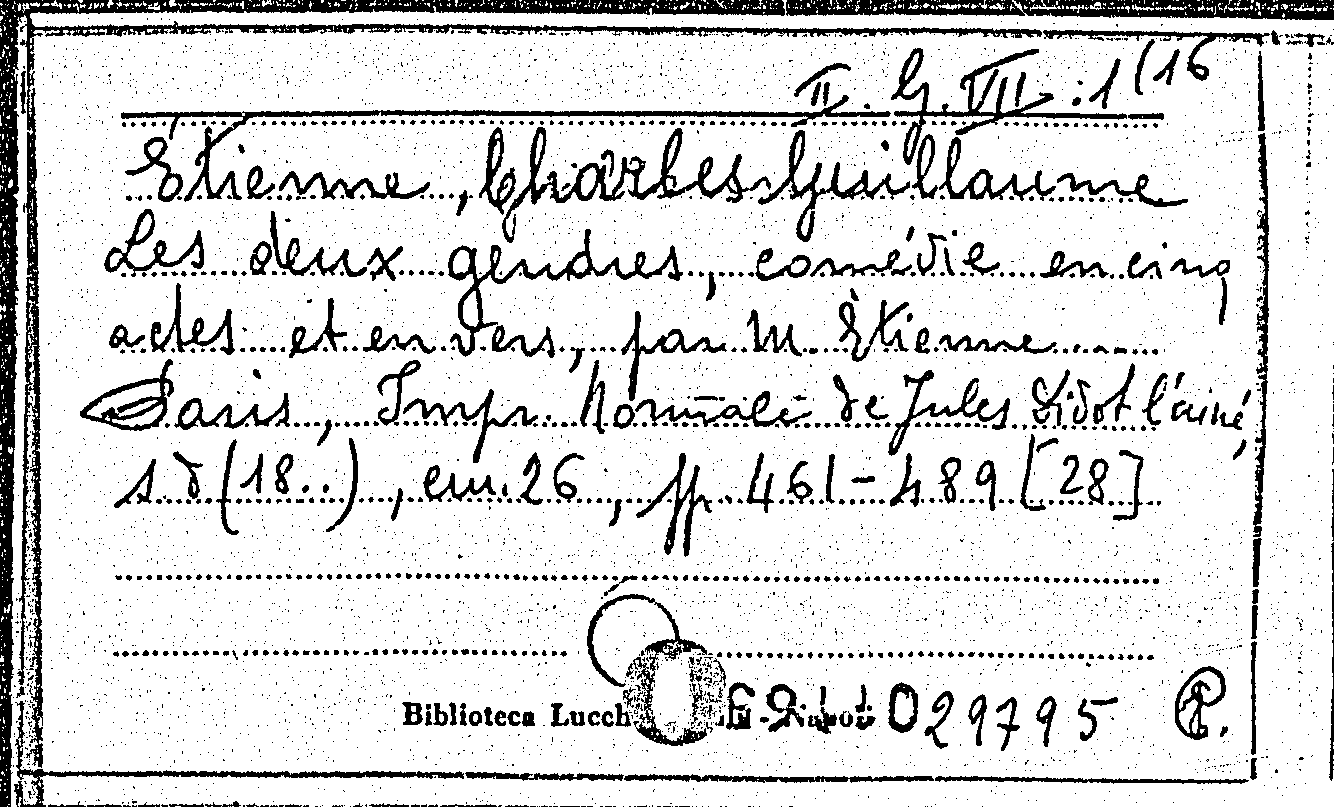 II. G. VII. : 1 (16
Étienne, Charles Guillaume
Les deux gendres, comédie en cinq
actes et en vers, par M. Étienne....
Paris, Impr. Normale de Jules Didot l'ainé,
s. d (18..), cm. 26, pp. 461-489 [28]
Biblioteca Lucch
029795 P.